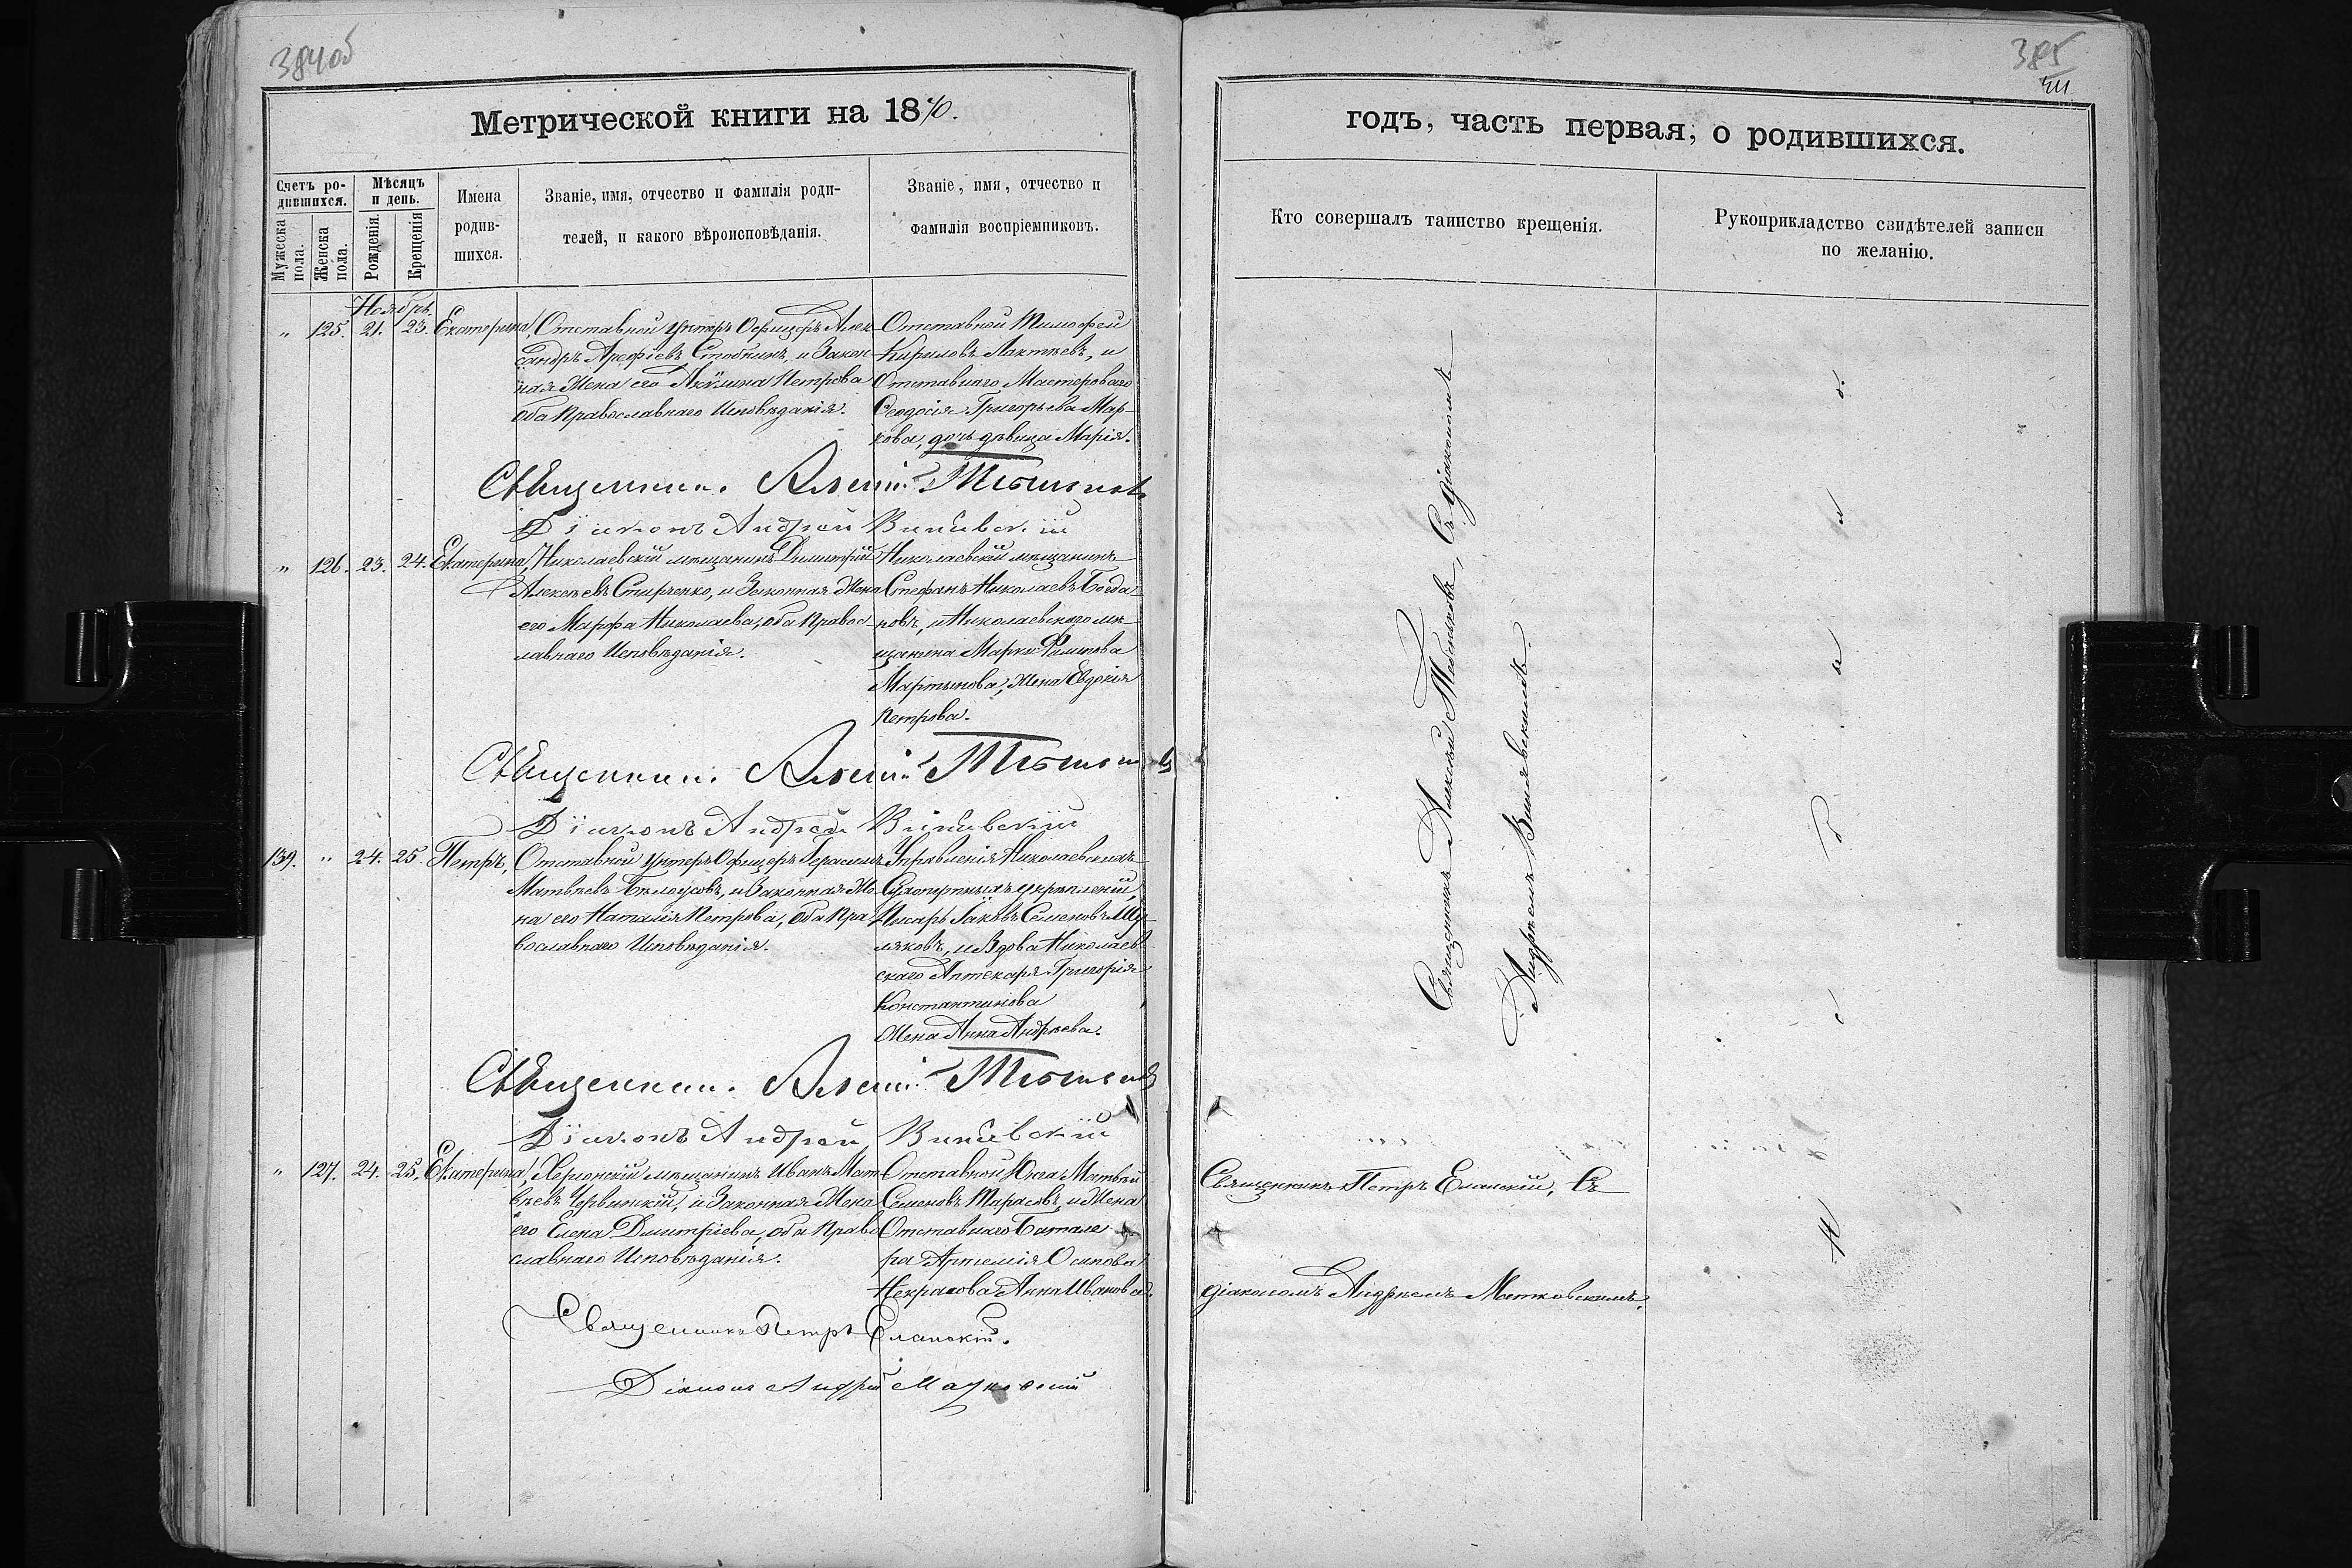 384об
Метрической книги на 1870.
Счетъ ро-
дившихся.
Мужеска
пола.
Женска
пола.
Мѣсяцъ
и день.
Рожденія.
Крещенія
Имена
родив-
шихся.
Званіе, имя, отчество и фамилія роди-
телей, и какого вѣроисповѣданія.
Званіе, имя, отчество и
фамилія воспріемниковъ.
Ноябрь.
„ 125. 21. 23. Екатерина,
Отставной унтеръ Офицеръ Алек-
сандръ Арефіевъ и Закон-
ная Жена его Акулина Петрова
оба Православнаго Исповѣданія.
Отставной Тимофей
Кириловъ Лактѣевъ, и
Отставнаго Мастероваго
Феодосія Григорьева Мар-
кова, дочь дѣвица Марія.
Священник.
Діаконъ Андрей
„ 126. 23. 24. Екатерина,
Николаевскій мѣщанинъ Димитрій
Алексѣевъ Спирченко, и Законная Жена
его Марфа Николаева, оба Правос-
лавнаго Исповѣданія.
Николаевскій мѣщанинъ
Стефанъ Николаевъ Богда-
новъ, и Николаевскаго мѣ-
щанина Марка Филипова
Мартынова, Жена Евдокія
Петрова.
Священник.
Діаконъ Андрей
139. „ 24. 25. Петръ,
Отставной унтеръ Офицеръ Герасимъ
Матвѣевъ Бѣлоусовъ, и Законная Же-
на его Наталія Петрова, оба Пра-
вославнаго Исповѣданія.
Управленія Николаевскихъ
Сухопутныхъ укрѣпленій,
Писарь Іаковъ Семеновъ Шу-
ляковъ, и Вдова Николаев-
скаго Аптекаря Григорія
Константинова
Жена Анна Андреева.
Священник.
Діаконъ Андрей
„ 127. 24. 25. Екатерина,
Херсонскій мѣщанинъ Иванъ Мат-
вѣевъ Червинскій, и Законная Жена
его Елена Димитріева, оба Право-
славнаго Исповѣданія.
Отставной Юнга Матвѣй
Семеновъ Тарасовъ, и Жена
Отставнаго Батале
ра Артемія Осипова
Некрасова Анна Иванова.
Священникъ Петръ Еланскій.
Діаконъ Андрей
385
годъ, часть первая, о родившихся.
Кто совершалъ таинство крещенія.
Рукоприкладство свидѣтелей записи
по желанію.
Священникъ Алексѣй съ діакономъ
Андреемъ
Священникъ Петръ Еланскій, съ
діакономъ Андреемъ Мотковскимъ.